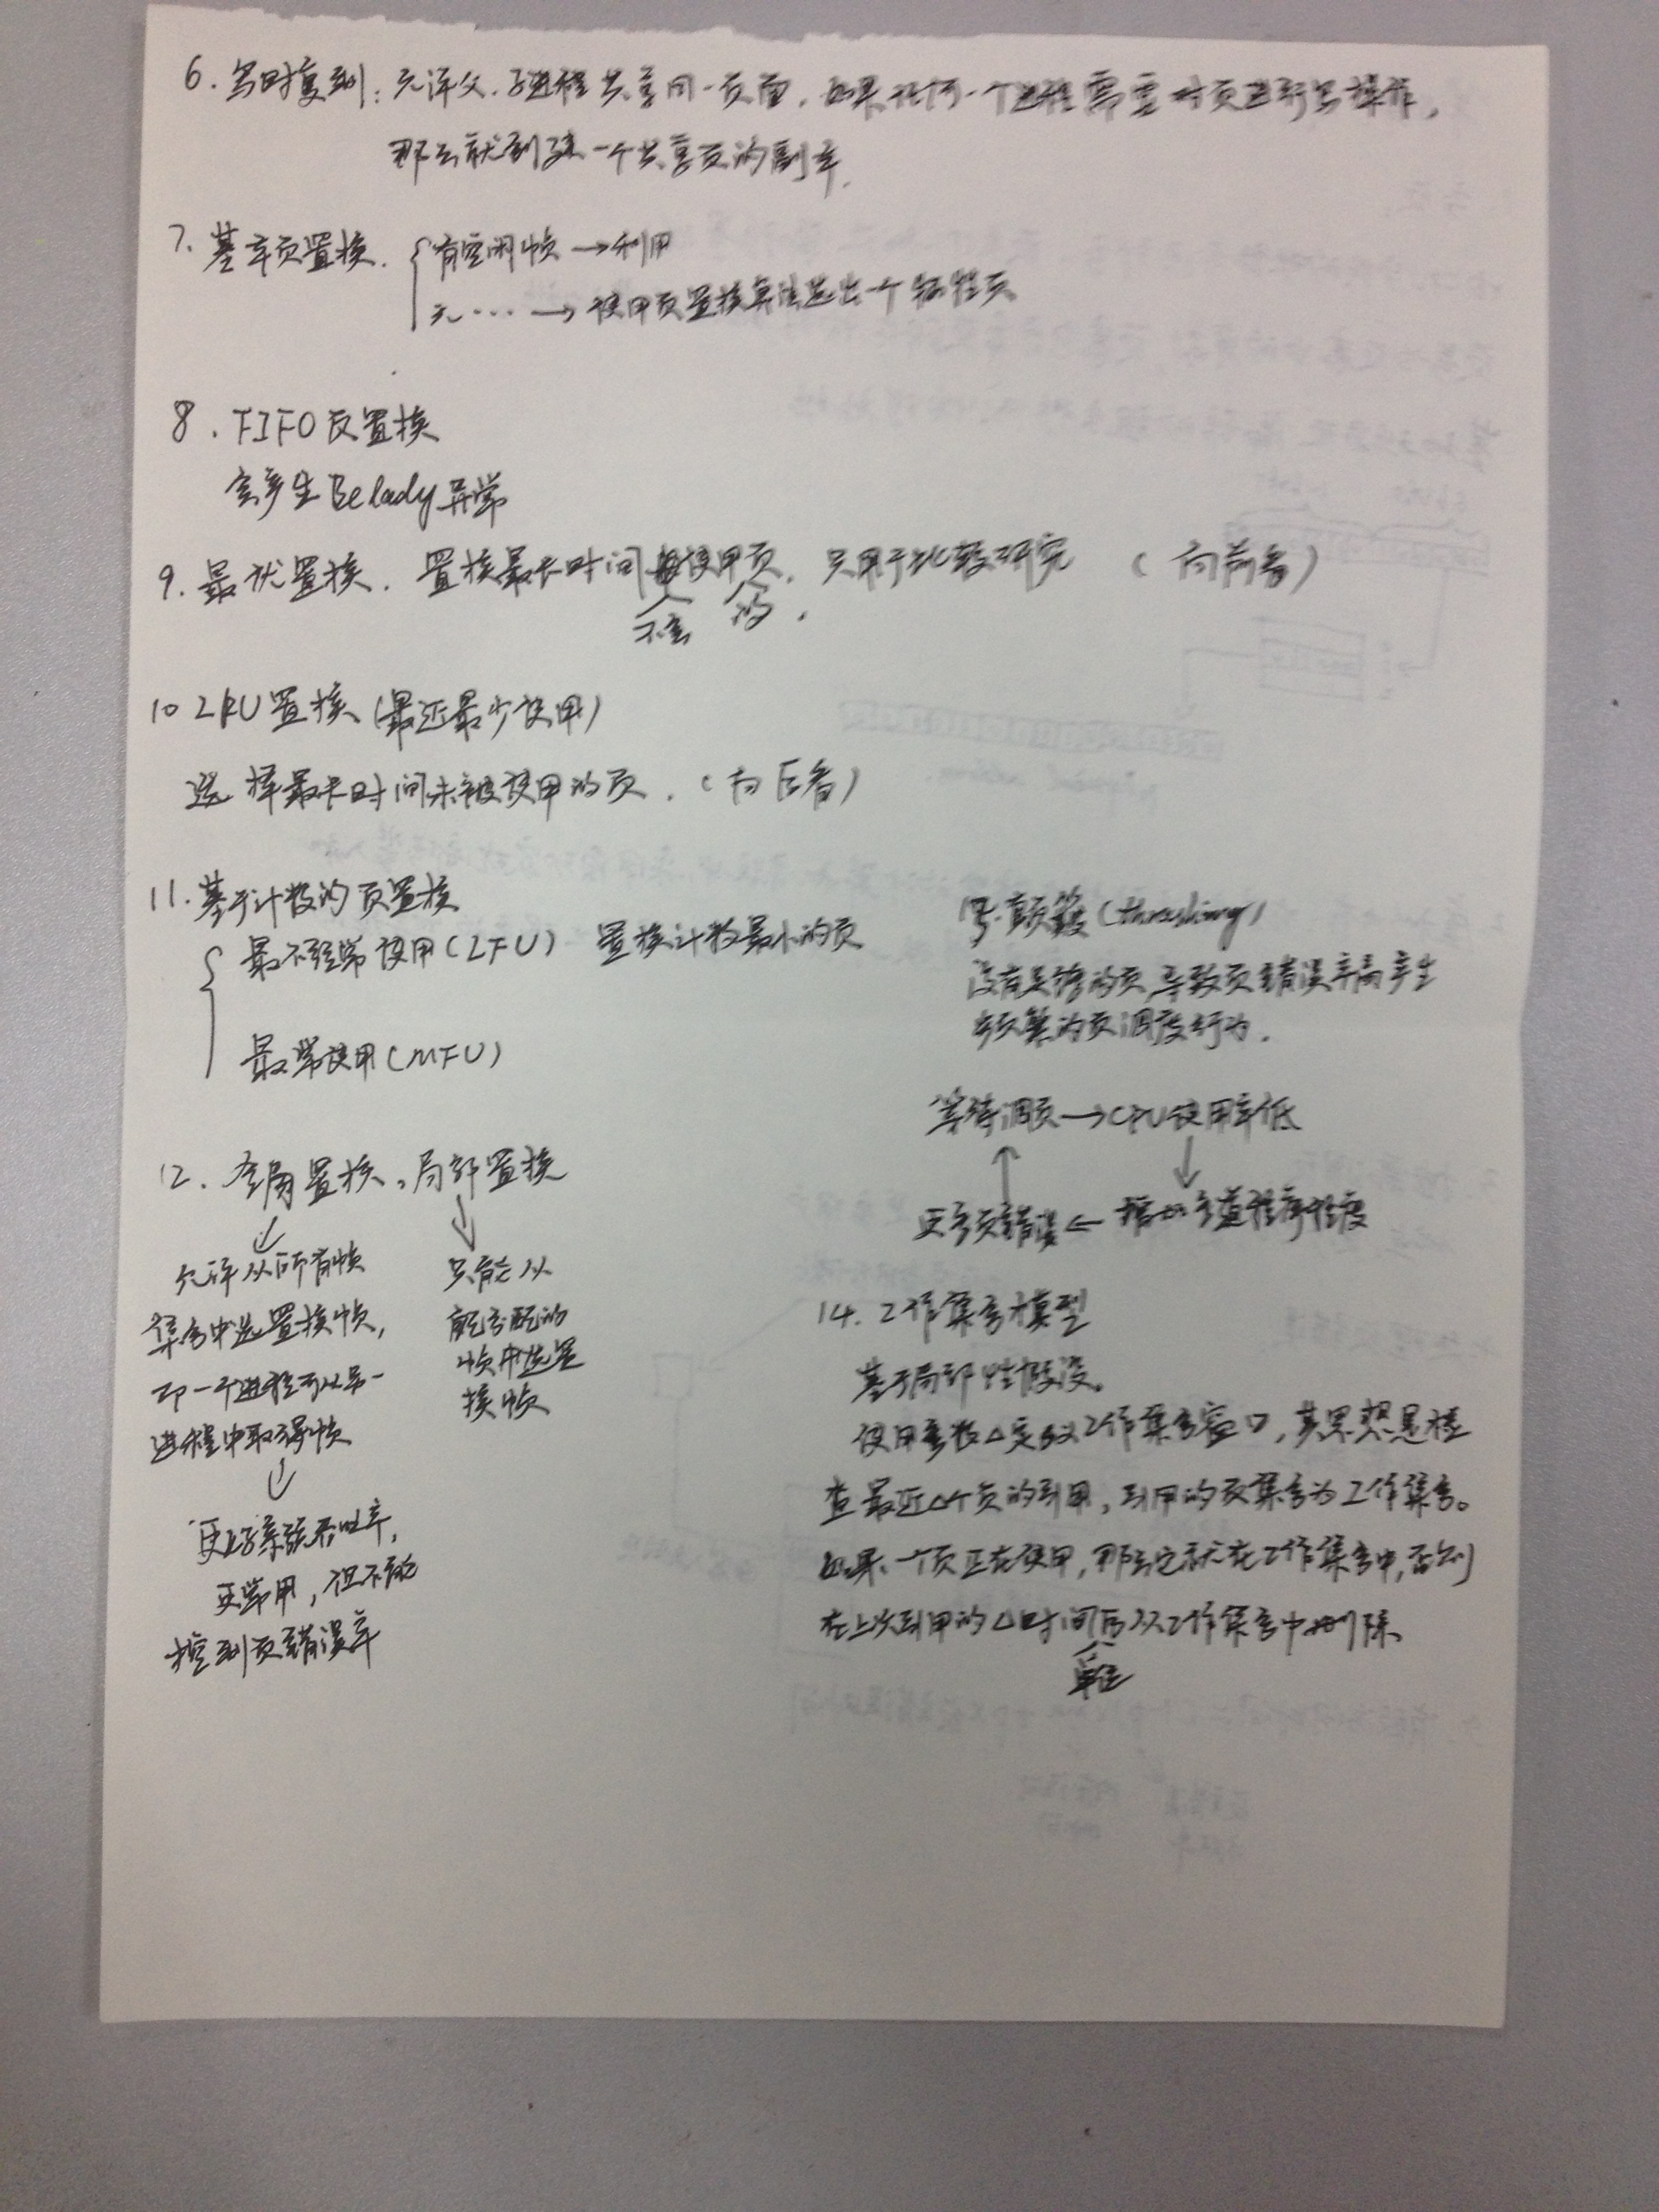 6. 写时复制：允许父、子进程共享同一页面，如果任何一个进程需要对页进行写操作，
那么就创建一个共享页的副本.
7. 基本页置换. 有空闲帧 → 利用
无 … → 使用页置换算法选出一个牺牲页
8. FIFO页置换
会产生Belady异常
9. 最优置换. 置换最长时间不会被使用的页. 只用于比较研究 (向前看)
10 LRU置换 (最近最少使用)
选择最长时间未被使用的页. (向后看)
11. 基于计数的页置换
最不经常使用(LFU) 置换计数最小的页
最常使用(MFU)
12. 全局置换、局部置换
允许从所有帧
集合中选置换帧,
即一个进程可从另一
进程中取得帧
更好系统吞吐率,
更常用, 但不能
控制页错误率
只能从
自己分配的
帧中选置
换帧
13. 颠簸 (thrashing)
没有足够的页,导致页错误率高产生
频繁的页调度行为.
等待调页 → CPU使用率低
更多页错误 ← 增加多道程序程度
14. 工作集合模型
基于局部性假设。
使用参数△定义工作集合窗口, 其思想是检
查最近△个页的引用, 引用的页集合为工作集合。
如果一个页正在使用, 那么它就在工作集合中, 否则
在上次引用的△时间单位后从工作集合中删除.